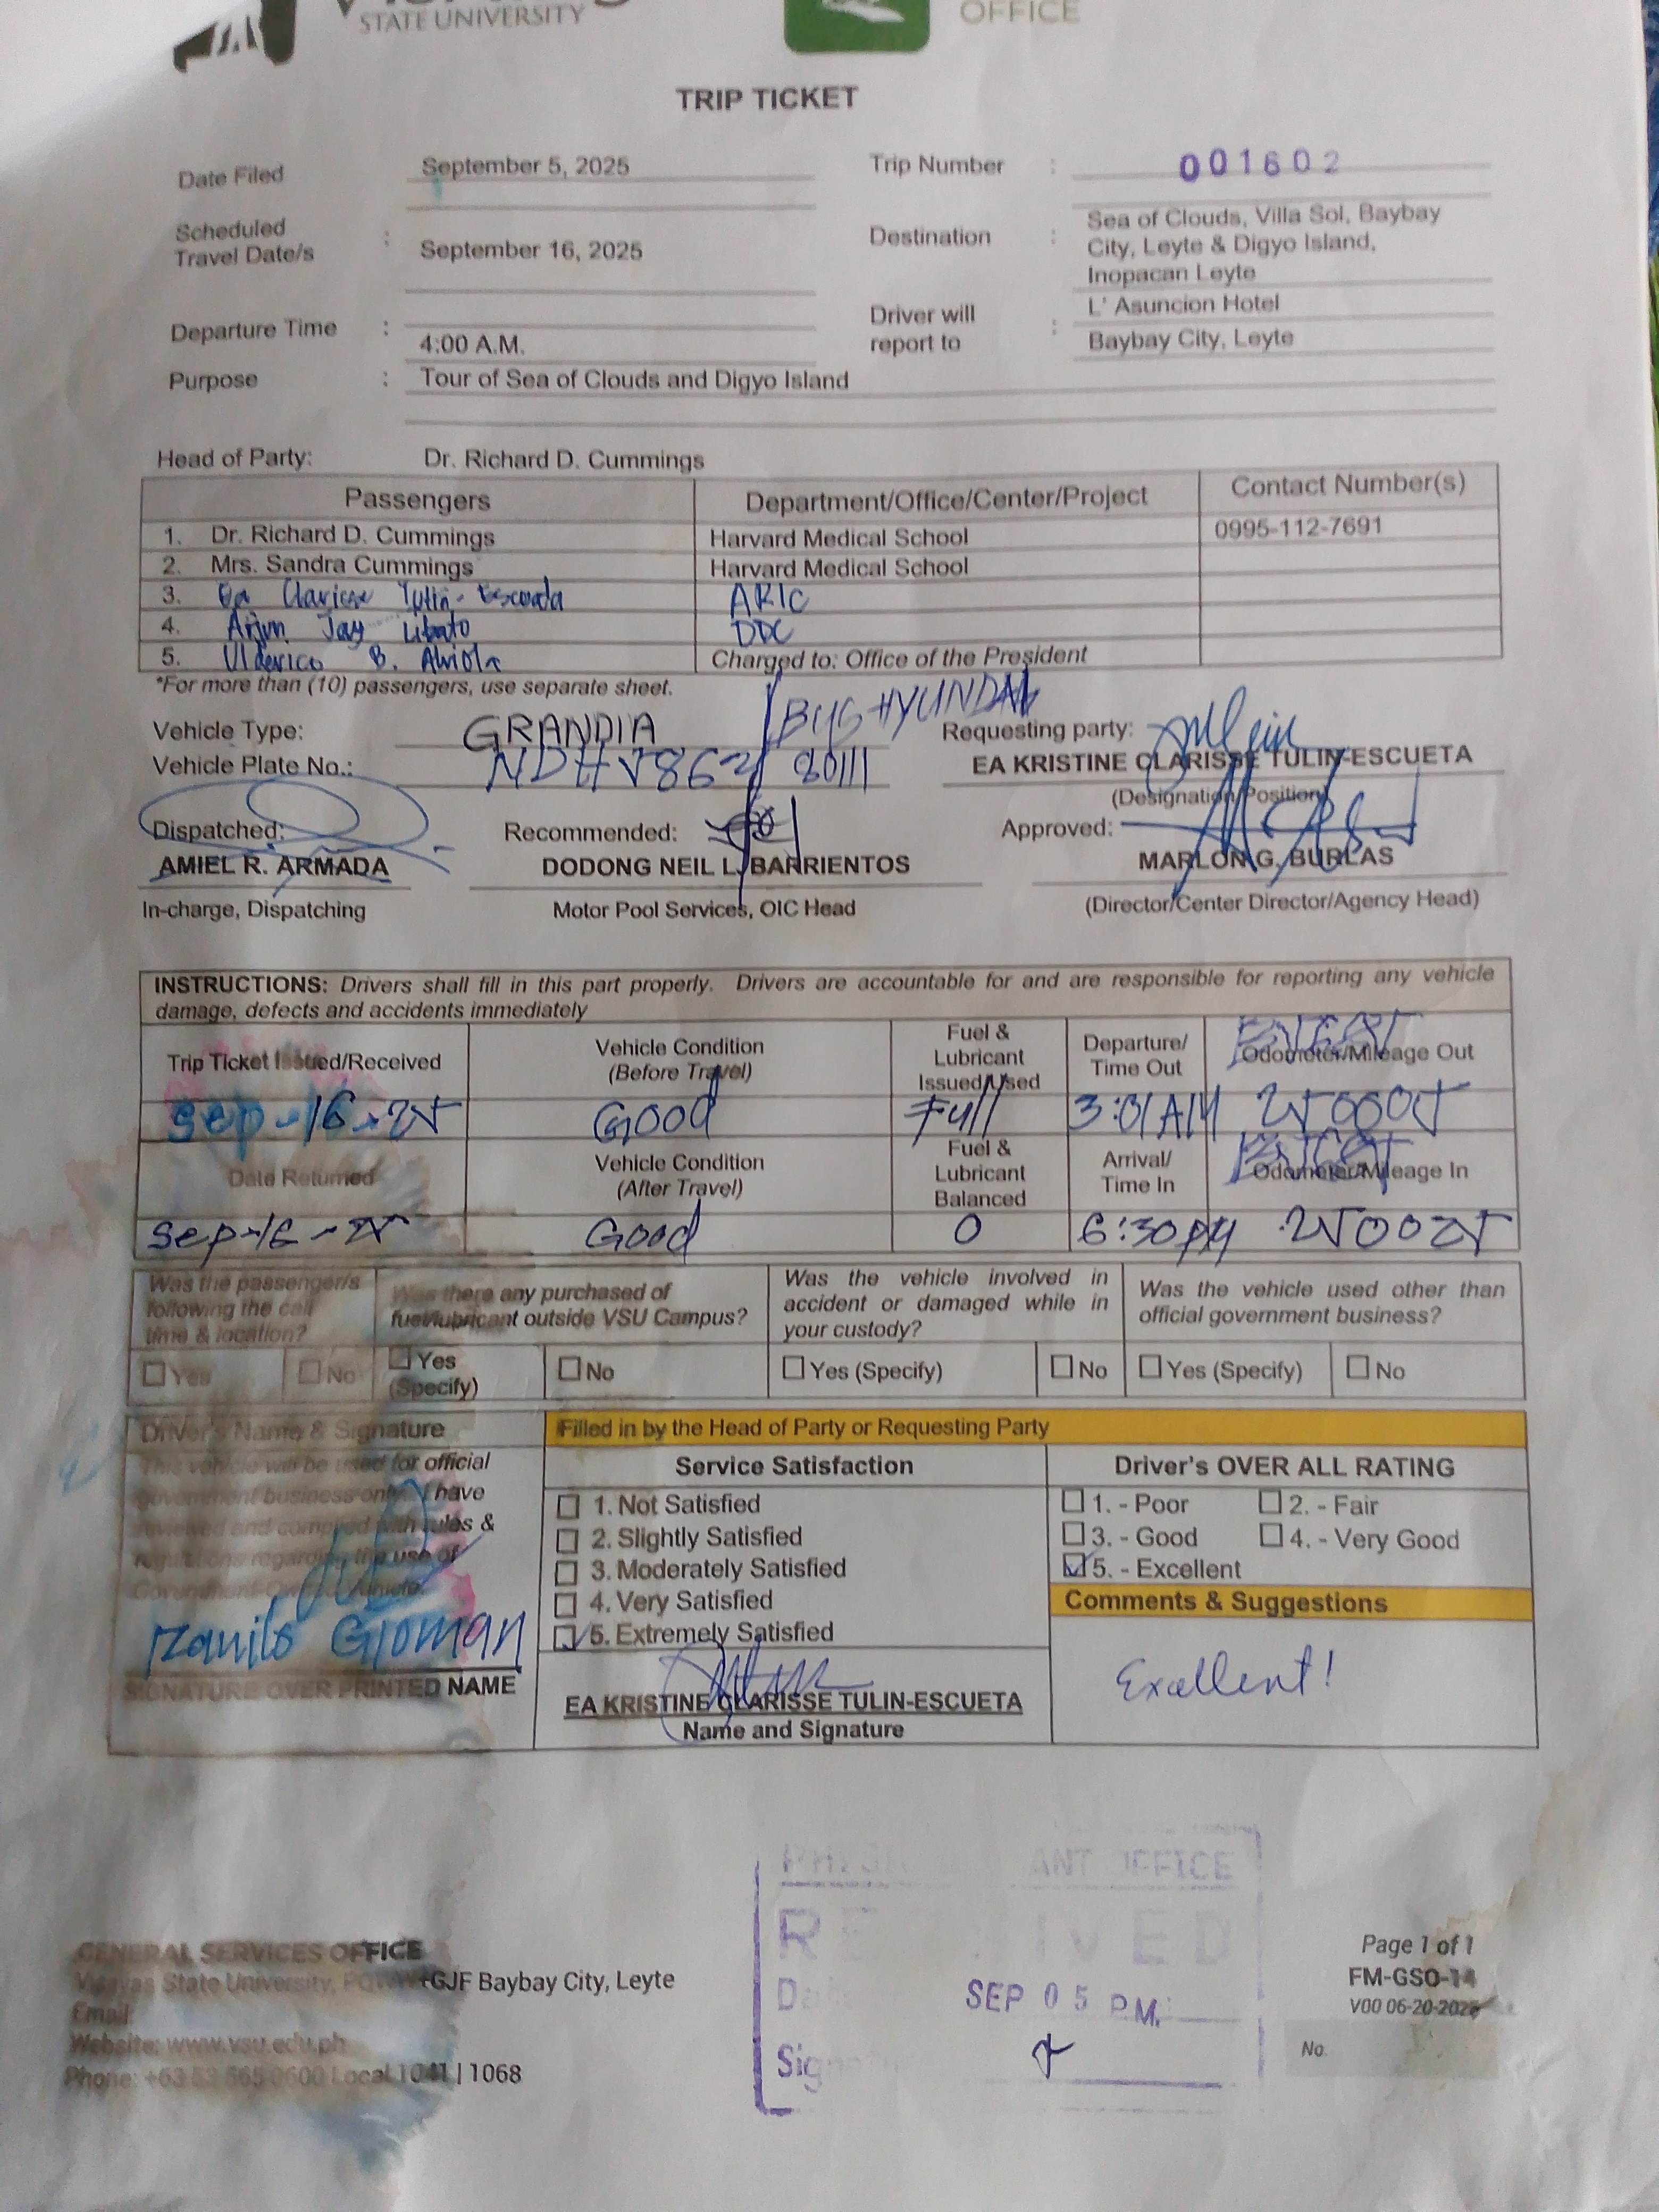 STATE UNIVERSITY
OFFICE
TRIP TICKET
Date Filed September 5, 2025 Trip Number : 001602
Scheduled Travel Date/s : September 16, 2025
Destination : Sea of Clouds, Villa Sol, Baybay
City, Leyte & Digyo Island,
Inopacan Leyte
Departure Time : 4:00 A.M.
Driver will report to : L' Asuncion Hotel
Baybay City, Leyte
Purpose : Tour of Sea of Clouds and Digyo Island
Head of Party: Dr. Richard D. Cummings
Passengers Department/Office/Center/Project Contact Number(s)
1. Dr. Richard D. Cummings Harvard Medical School 0995-112-7691
2. Mrs. Sandra Cummings Harvard Medical School
3. Ea Clarisse Tulin-Escueta ARIC
4. Arjun Jay Libato DDC
5. Ulderico B. Alviola Charged to: Office of the President
*For more than (10) passengers, use separate sheet.
Vehicle Type: GRANDIA / HYUNDAI Requesting party:
Vehicle Plate No.: EA KRISTINE CLARISSE TULIN-ESCUETA
(Designation/Position)
Dispatched: Recommended: Approved:
AMIEL R. ARMADA DODONG NEIL L. BARRIENTOS MARLON G. BURLAS
In-charge, Dispatching Motor Pool Services, OIC Head (Director/Center Director/Agency Head)
INSTRUCTIONS: Drivers shall fill in this part properly. Drivers are accountable for and are responsible for reporting any vehicle
damage, defects and accidents immediately
Trip Ticket Issued/Received Vehicle Condition (Before Travel) Fuel & Lubricant Issued/Used Departure/ Time Out Odometer/Mileage Out
Sep-16-25 Good Full 3:01AM 250005
Date Returned Vehicle Condition (After Travel) Fuel & Lubricant Balanced Arrival/ Time In Odometer/Mileage In
Sep-16-25 Good 0 6:30PM 250025
Was the passenger/s following the call time & location?
Was there any purchased of fuel/lubricant outside VSU Campus?
Was the vehicle involved in accident or damaged while in your custody?
Was the vehicle used other than official government business?
Yes No Yes (Specify) No Yes (Specify) No Yes (Specify) No
Driver's Name & Signature Filled in by the Head of Party or Requesting Party
This vehicle will be used for official
government business only. I have
reviewed and complied with rules &
regulations regarding the use of
Government-Owned Vehicle.
SIGNATURE OVER PRINTED NAME
Service Satisfaction
1. Not Satisfied
2. Slightly Satisfied
3. Moderately Satisfied
4. Very Satisfied
5. Extremely Satisfied
EA KRISTINE CLARISSE TULIN-ESCUETA
Name and Signature
Driver's OVER ALL RATING
1. - Poor 2. - Fair
3. - Good 4. - Very Good
5. - Excellent
Comments & Suggestions
Excellent!
GENERAL SERVICES OFFICE
Visayas State University, +GJF Baybay City, Leyte
Email:
Website: www.vsu.edu.ph
Phone: +63 53 565 0600 Local 1041 | 1068
SEP 05 PM.
Page 1 of 1
FM-GSO-14
No.